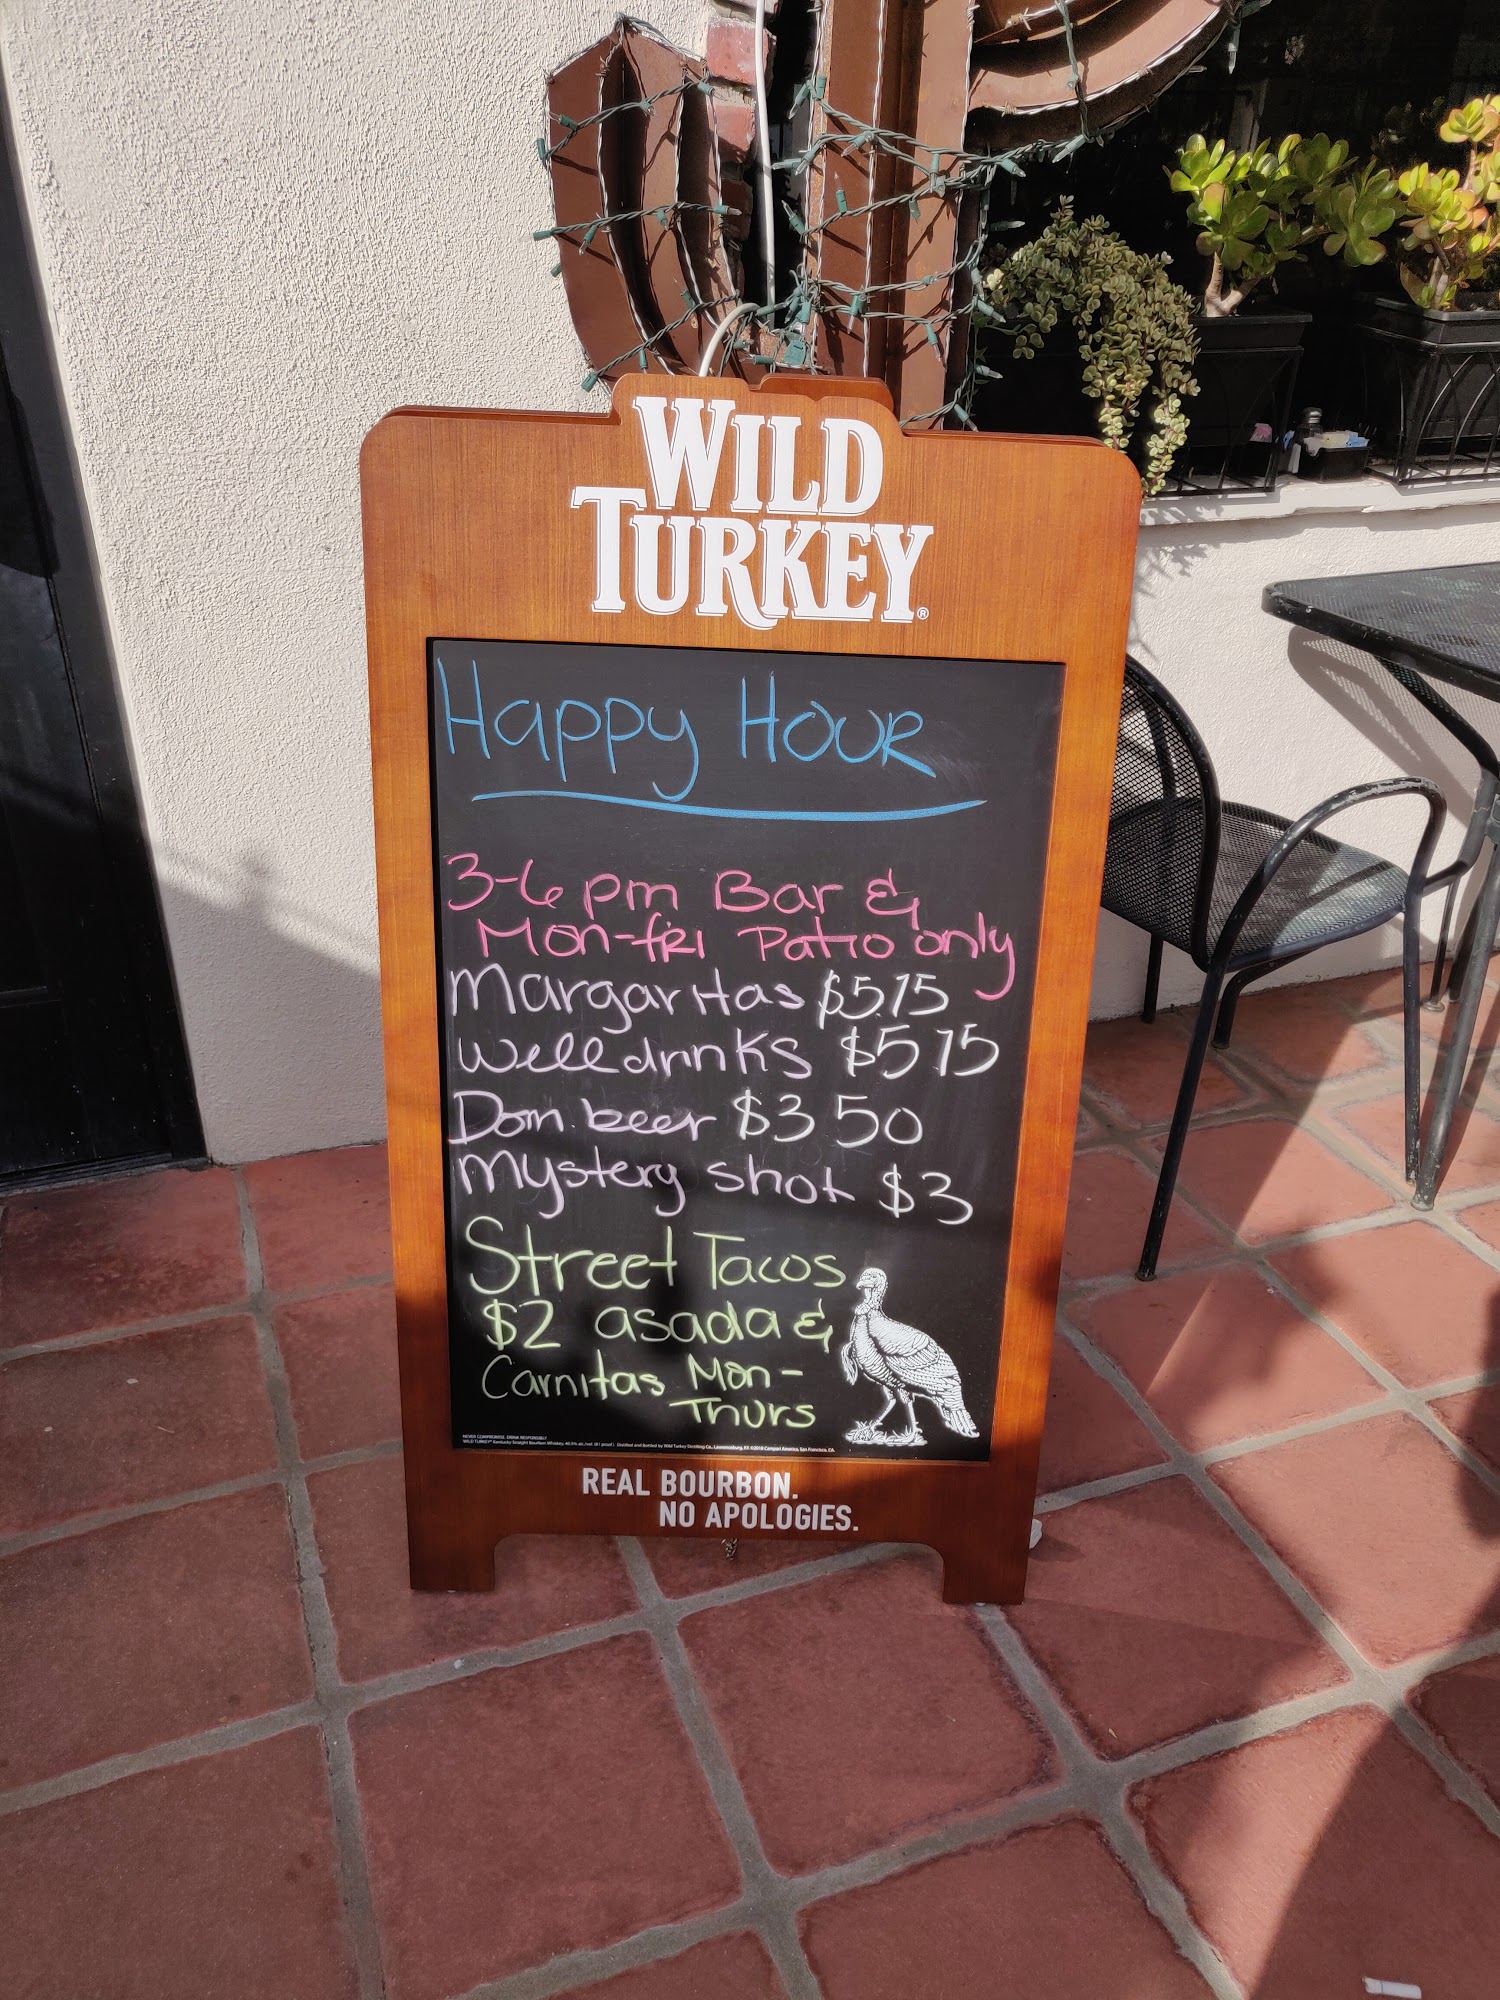 WILD
TURKEY®
Happy HOUR
3-6 pm Bar &
Mon-fri Patio only
Margaritas $5.75
Well drinks $5.75
Dom. beer $3.50
Mystery shot $3
Street Tacos
$2 asada &
Carnitas Mon-
Thurs
NEVER COMPROMISE. DRINK RESPONSIBLY.
WILD TURKEY® Kentucky Straight Bourbon Whiskey, 40.5% alc./vol. (81 proof). Distilled and Bottled by Wild Turkey Distilling Co., Lawrenceburg, KY. ©2018 Campari America, San Francisco, CA.
REAL BOURBON.
NO APOLOGIES.